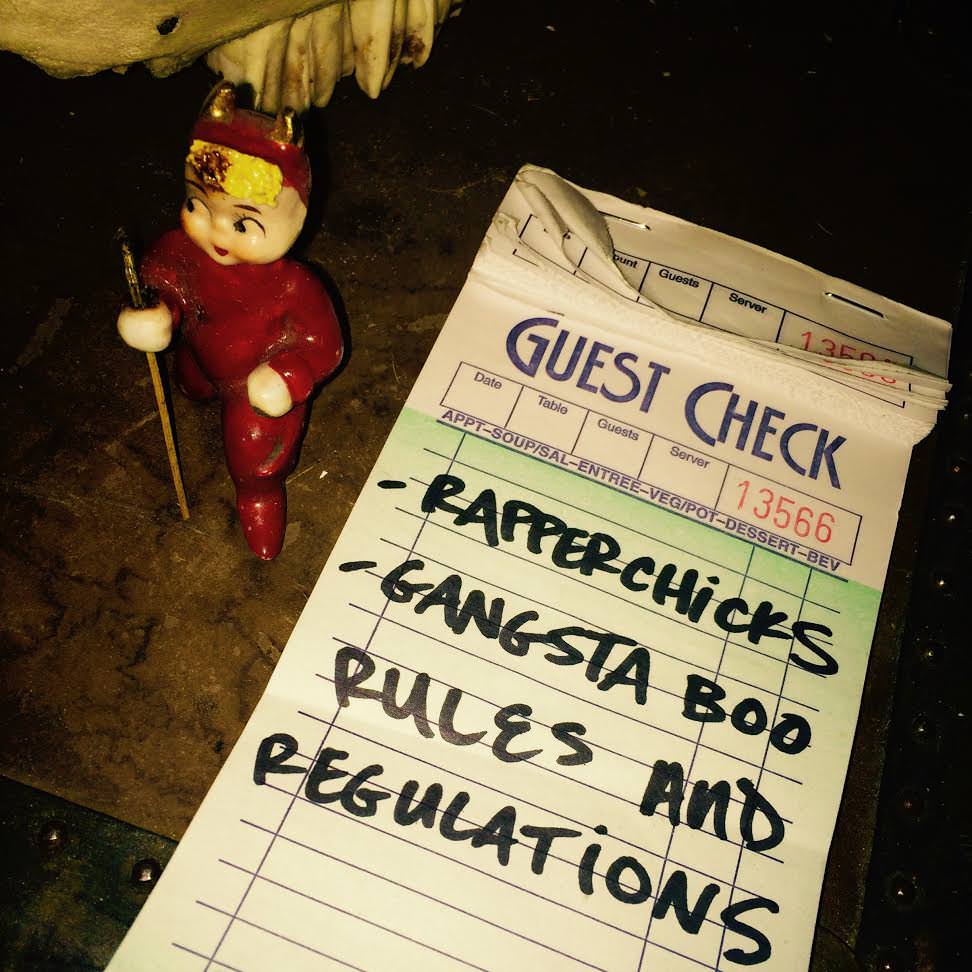 ount Guests Server
GUEST CHECK
Date Table Guests Server
13566
APPT-SOUP/SAL-ENTREE-VEG/POT-DESSERT-BEV
- RAPPERCHiCKS
- GANGSTA BOO
RULES AND
REGULATiONS